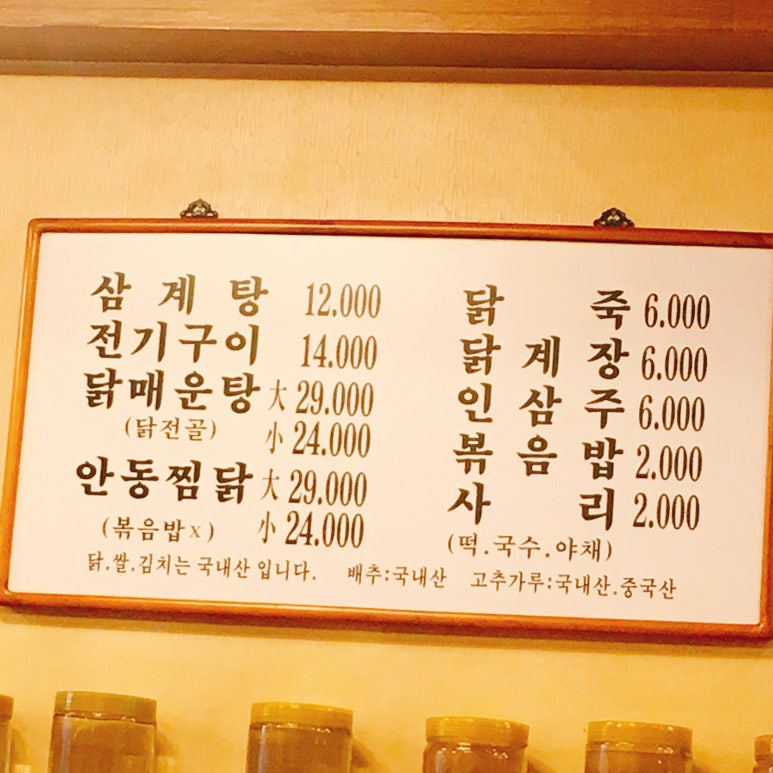 삼계탕 12.000
전기구이 14.000
닭매운탕 大 29.000
(닭전골) 小 24.000
안동찜닭 大 29.000
(볶음밥x) 小 24.000
닭 죽 6.000
닭계장 6.000
인삼주 6.000
볶음밥 2.000
사 리 2.000
(떡.국수.야채)
닭.쌀.김치는 국내산 입니다. 배추:국내산 고추가루:국내산.중국산